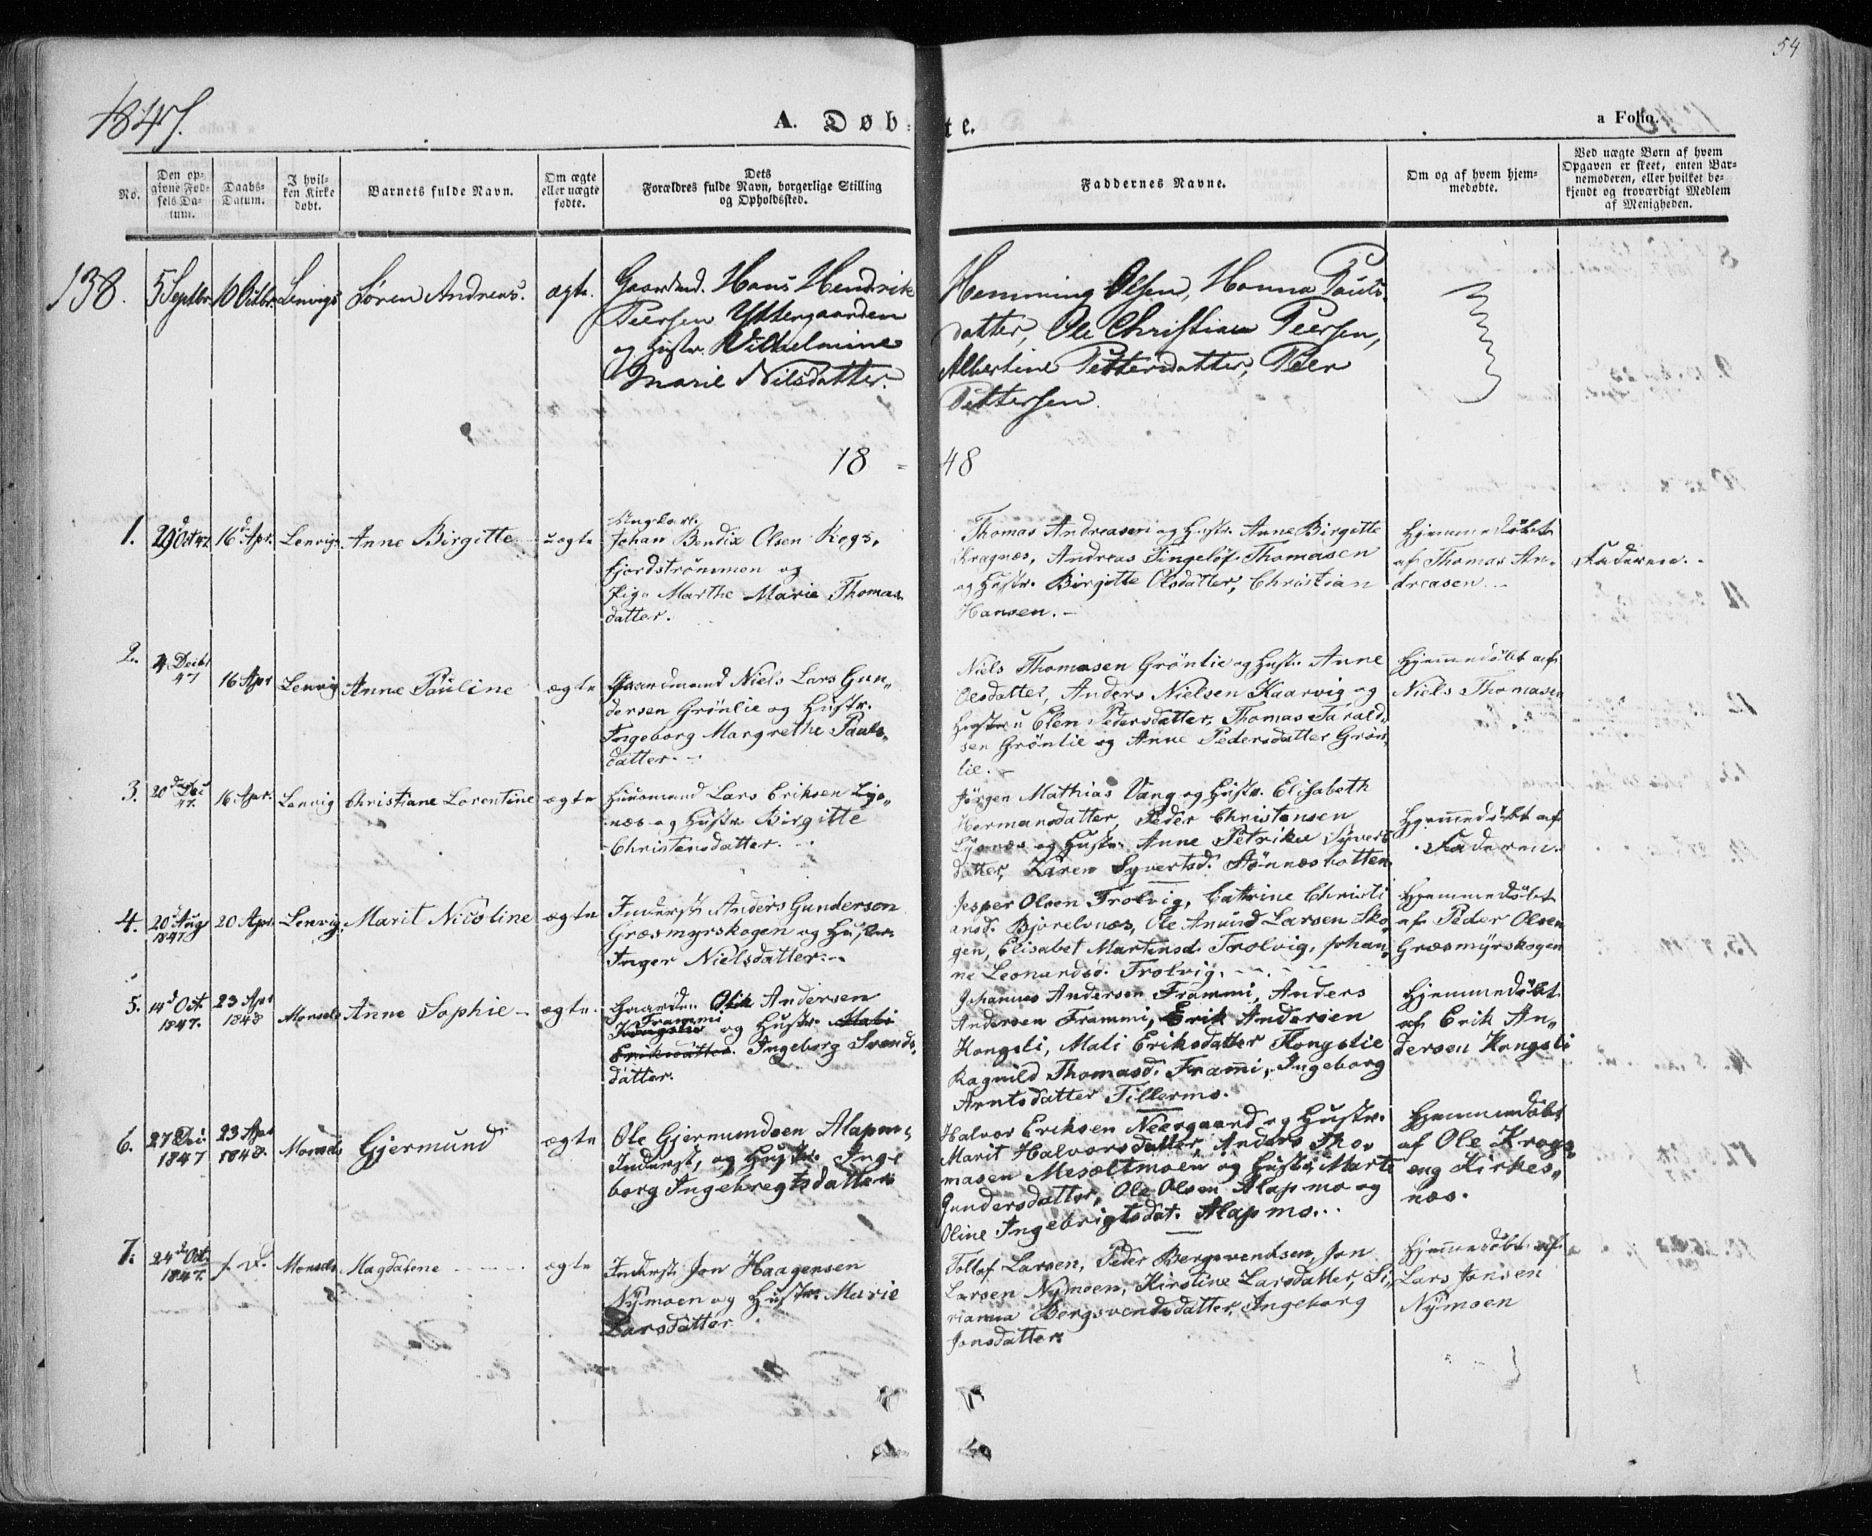 54
1847.
A. Døb-te.
a Folio.
No.
Den op-
givne Fød-
sels Da-
tum.
Daabs-
Datum.
I hvil-
ken Kirke
døbt.
Barnets fulde Navn.
Om ægte
eller uægte
fødte.
Dets
Forældres fulde Navn, borgerlige Stilling
og Opholdssted.
Faddernes Navne.
Om og af hvem hjem-
medøbte.
Ved uægte Børn af hvem
Opgaven er skeet, enten Bar-
nemoderen, eller hvilket be-
kjendt og troværdigt Medlem
af Menigheden.
138. 5 Septbr. 10 Octbr. Lenvigs Søren Andreas. ægte.
Gaardmd. Hans Hendrik
Peersen Yttergaarden
og Hustr. Wilhelmine
Marie Nilsdatter.
Hemming Olsen, Hanna Pauls-
datter, Ole Christian Peersen,
Albertine Pettersdatter, Peer
Pettersen.
18 - 48
1. 29d Oct 47. 16d Apr. Lenvig Anne Birgitte uægte
Ungkarl
Johan Bendix Olsen Rogs-
fjordstrømmen og
Pige Marthe Marie Thomas-
datter.
Thomas Andreasen og Hustr. Anne Birgitte
Kragnæs, Andreas Tingeløf Thomasen
og Hustr. Birgitte Olsdatter, Christian
Hansen.
Hjemmedøbt
af Thomas An-
dreasen.
Faderen.
2. 4 Decbr 47 16 Apr Lenvig Anne Pauline ægte
Gaardmand Niels Lars Gun-
dersen Grönlie og Hustr.
Ingeborg Margrethe Pauls-
datter.
Niels Thomasen Grönlie og Hustr. Anne
Olsdatter, Anders Nielsen Kaarvig og
Hustru Elen Pedersdatter, Thomas Tarald-
sen Grönlie og Anne Pedersdatter Grön-
lie.
Hjemmedöbt af
Niels Thomasen
3. 20d Dec 47. 16 Apr. Lenvig Christiane Lorentine ægte
Huusmand Lars Eriksen Lys-
næs og Hustr. Birgitte
Christensdatter.
Jörgen Mathias Vang og Hustr. Elisabeth
Hermansdatter, Peder Christensen
Lysnæs og Hustr. Anne Petrikka Syvert-
datter, Karen Syvertsd. Stønnesbotten
Hjemmedöbt af
Faderen.
4. 20 Aug 1847 20 Apr. Lenvig Marit Nicoline ægte
Inderst Anders Gundersen
Græsmyrskogen og Hustr.
Inger Nielsdatter.
Jesper Olsen Trolvig, Catrine Christi-
ansd. Bjorelvnæs, Ole Amund Larsen Sko-
gen, Elisabet Martinsd. Trolvig, Johan-
ne Leonardsd. Trolvig.
Hjemmedöbt
af Peder Olsen
Græsmyrskogen
5. 14d Oct 1847. 23 Apr 1848 Monsels Anne Sophie ægte.
Gaardm. Ole Andersen
Frammi
Kongslie og Hustr. Mali
Eriksdatter. Ingeborg Svends-
datter.
Johannes Andersen Frammi, Anders
Andersen Frammi, Erik Andersen
Kongsli, Mali Eriksdatter Kongslie
Ragnild Thomasd. Frammi, Ingeborg
Arntsdatter Tillermo.
Hjemmedöbt
af Erik An-
dersen Kongsli
6. 27 Dec 1847 23 Apr 1848. Monsels Gjermund ægte
Ole Gjermundsen Alapmo
Inderst, og Hustr. Inge-
borg Ingebregtsdatter
Halvor Eriksen Neergaard og Hustr.
Marit Halvorsdatter, Anders Tho-
masen Mesæltmoen og Hustr. Marte
Gundersdatter, Ole Olsen Alapmo og
Oline Ingebrigtsdat. Alapmo.
Hjemmedöbt
af Ole Krogs-
eng Kirkes-
næs.
7. 24d Oct. 1847. s. D. Monsels Magdalene ægte
Inderst Jon Haagensen
Nÿmoen og Hustr. Marie
Larsdatter.
Tollef Larsen, Peder Bergsvendsen, Jon
Larsen Nymoen, Kirstine Larsdatter, Si-
rianna Bergsvendsdatter, Ingeborg
Jonsdatter
Hjemmedöbt af
Lars Jonsen
Nÿmoen